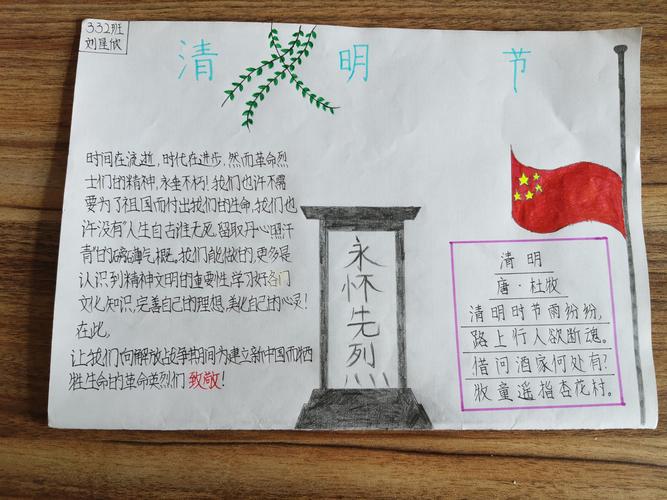 332班
刘星欣
清 明 节
时间在流逝，时代在进步，然而革命烈
士们的精神，永垂不朽！我们也许不需
要为了祖国而付出我们的生命，我们也
许没有"人生自古谁无死，留取丹心照汗
青"的磅礴气概。我们能做的，更多是
认识到精神文明的重要性，学习好各门
文化知识，完善自己的理想，美化自己的心灵！
在此，
让我们向解放战争其期间为建立新中国而牺
牲生命的革命英烈们 致敬！
永怀先烈
清 明
唐·杜牧
清明时节雨纷纷，
路上行人欲断魂。
借问酒家何处有？
牧童遥指杏花村。